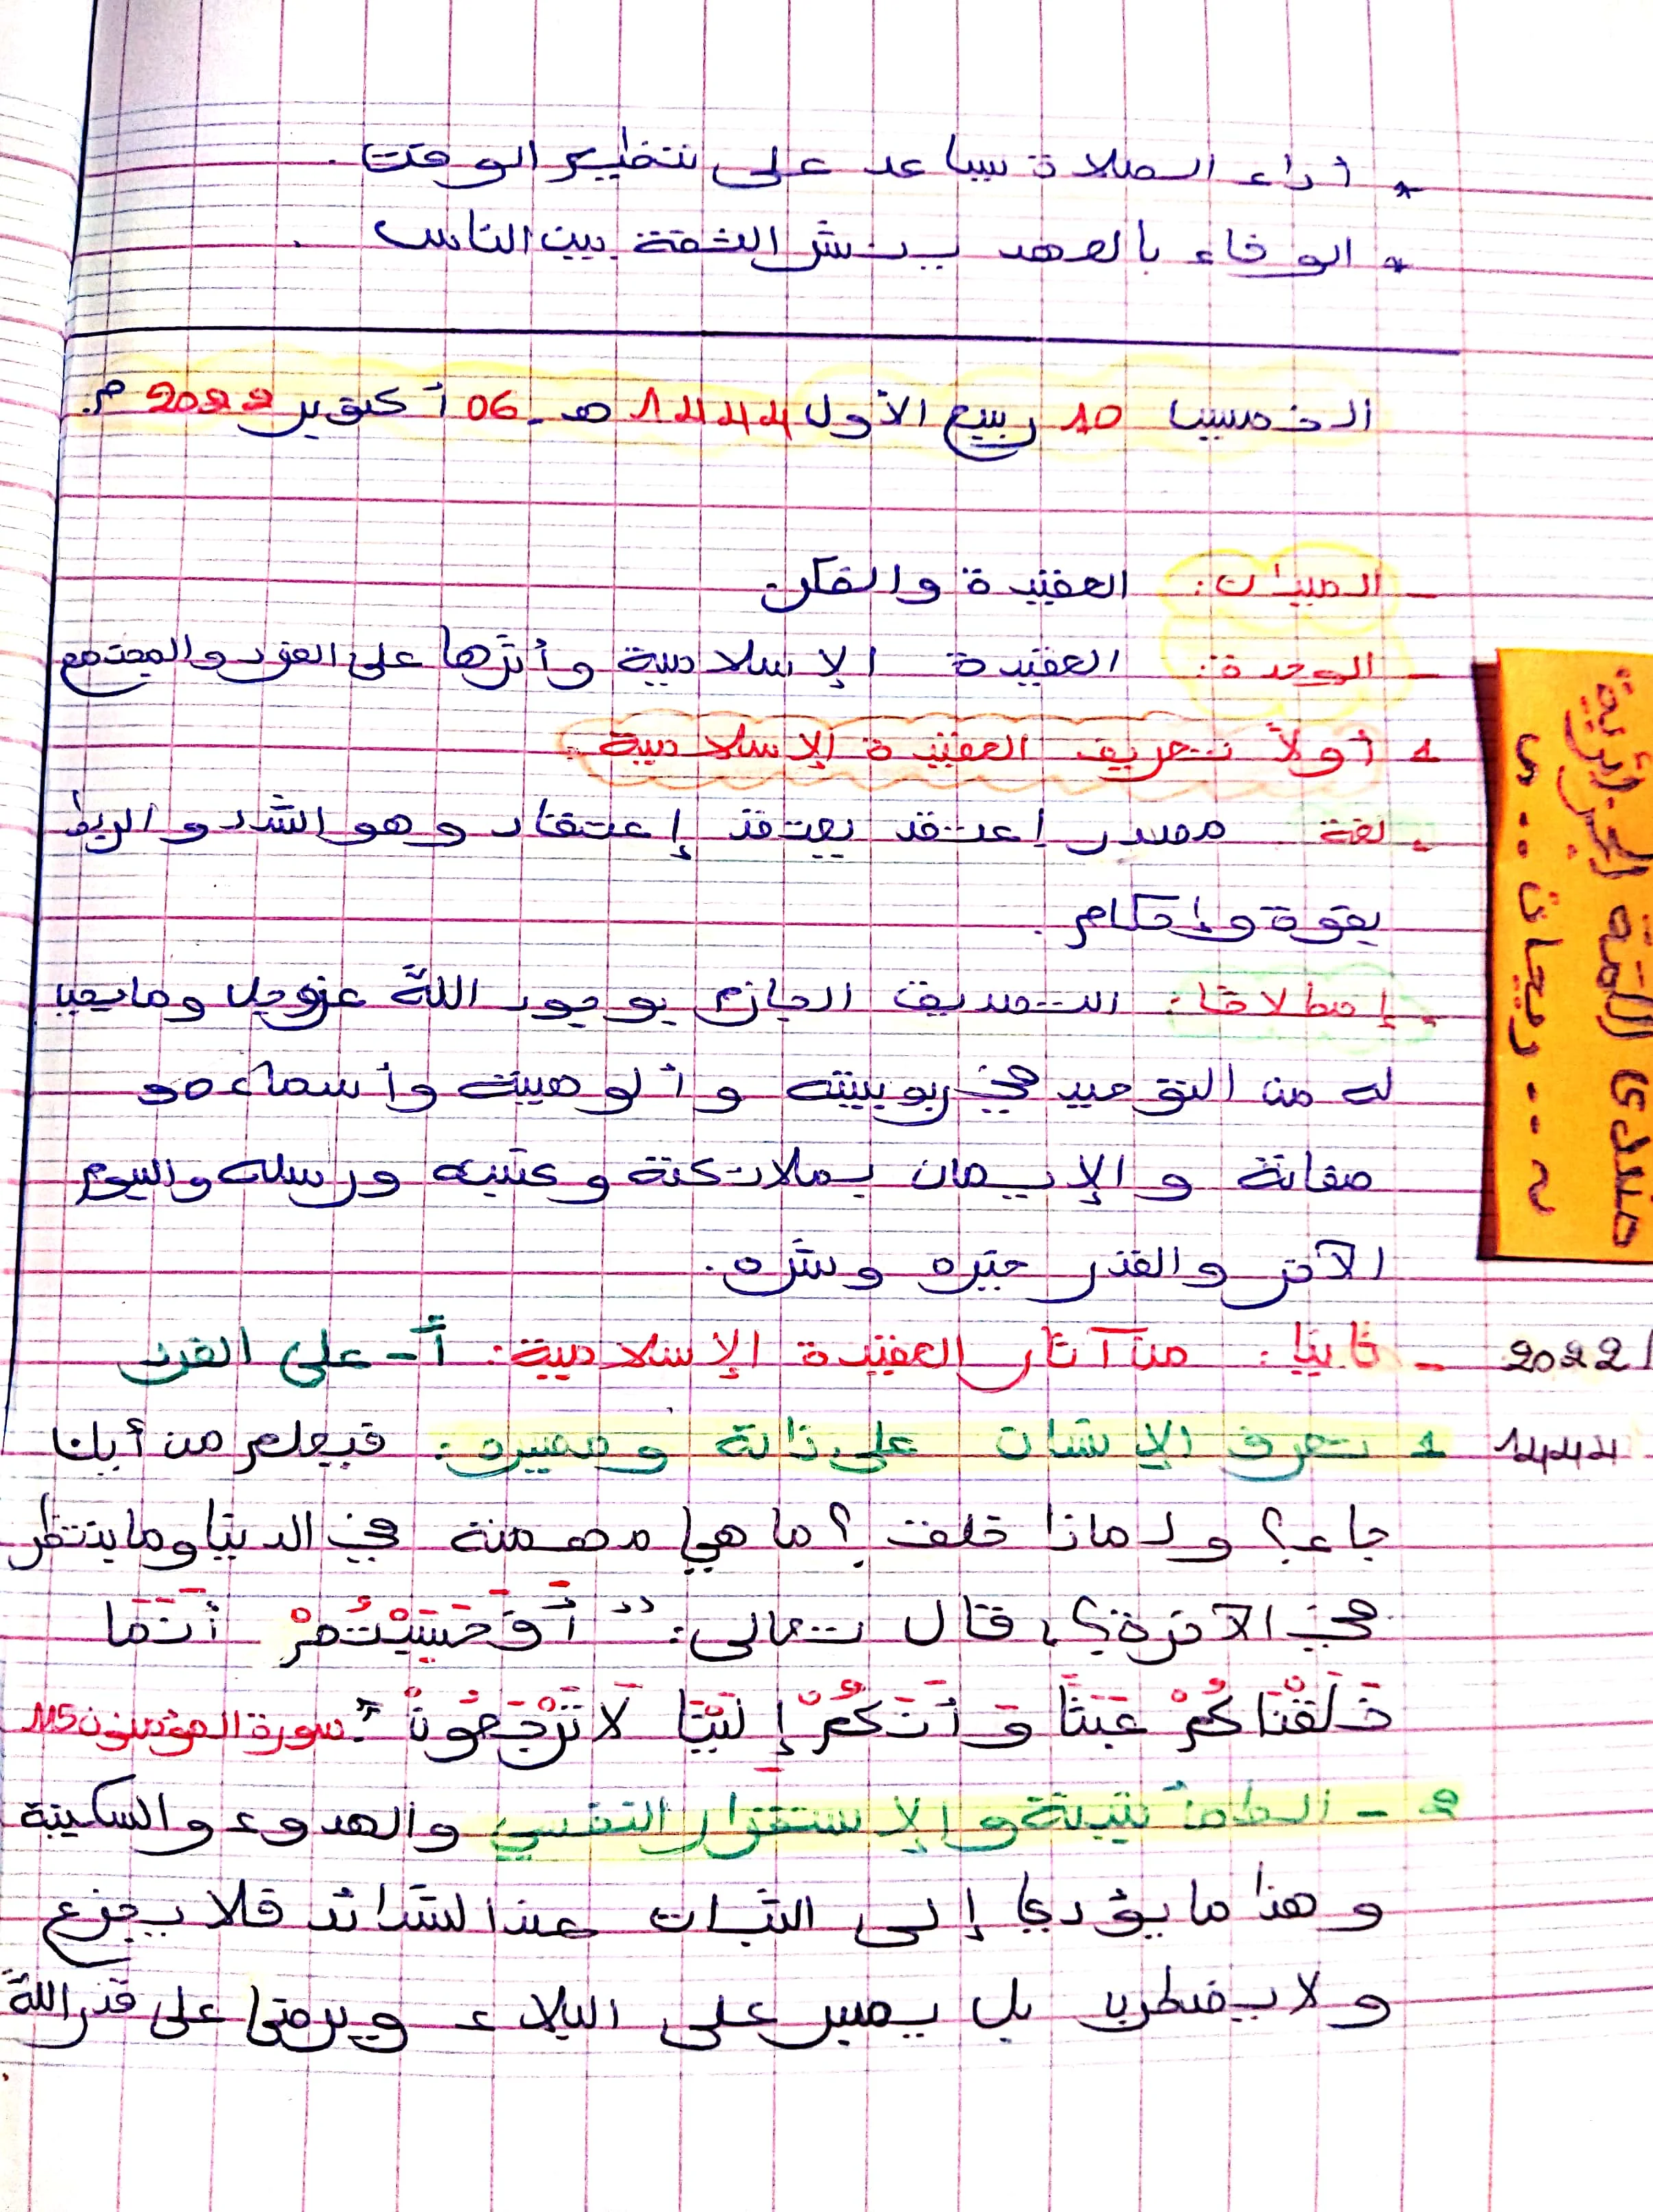 * أداء الصلاة يساعد على تنظيم الوقت.
* الوفاء بالعهد ينشر الثقة بين الناس.
الخميس 10 ربيع الأول 1444 هـ - 06 أكتوبر 2022 م.
- الميدان: العقيدة والفكر.
- الوحدة: العقيدة الإسلامية وأثرها على الفرد والمجتمع
1 أولاً تعريف العقيدة الإسلامية.
. لغة مصدر اعتقد يعتقد إعتقاد وهو الشد و الربط
بقوة وإحكام.
. إصطلاحا: التصديق الجازم بوجود الله عزوجل ومايجب
له من التوحيد في ربوبيته وألوهيته وأسماءه و
صفاته و الإيمان بملائكته وكتبه ورسله واليوم
الآخر والقدر خيره وشره.
- ثانيا: من آثار العقيدة الإسلامية: أ- على الفرد
1 تعرف الإنسان على ذاته ومصيره: فيعلم من أين
جاء؟ ولماذا خلق؟ ما هي مهمته في الدنيا وما ينتظر
في الآخرة؟، قال تعالى: " أَفَحَسِبْتُمْ أَنَّمَا
خَلَقْنَاكُمْ عَبَثًا وَ أَنَّكُمْ إِلَيْنَا لَا تُرْجَعُونَ". سورة المؤمنون 115
2 - الطمأنينة و الإستقرار النفسي والهدوء والسكينة
وهذا ما يؤدي إلى الثبات عند الشدائد فلا يجزع
ولا يضطرب بل يصبر على البلاء ويرضى على قدر الله
منتدى اللمة الجزائرية
ريحان
2022/
1444